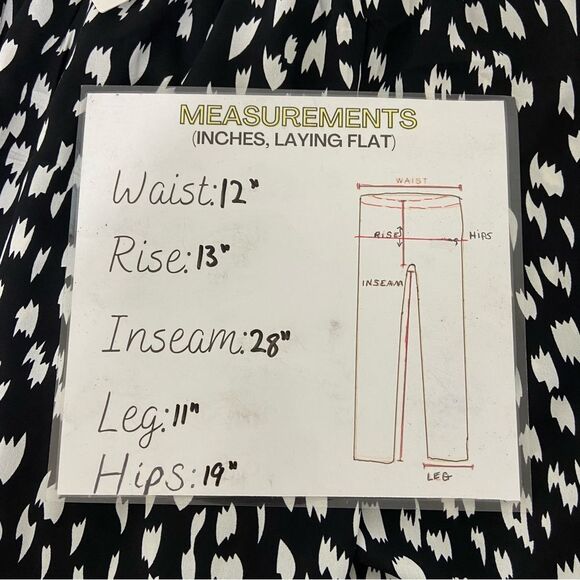 MEASUREMENTS
(INCHES, LAYING FLAT)
Waist: 12"
Rise: 13"
Inseam: 28"
Leg: 11"
Hips: 19"
WAIST
RISE
HIPS
INSEAM
LEG